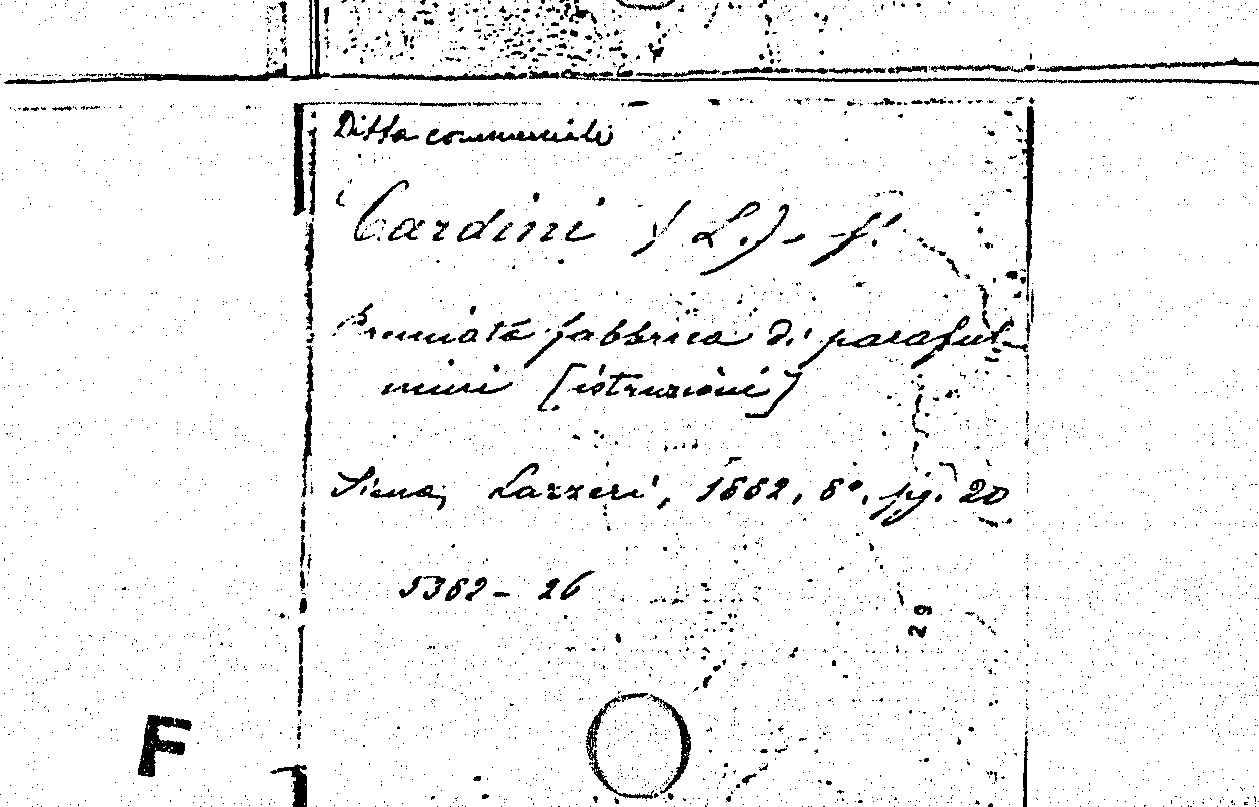 Ditta commerciale
Cardini (L.) - f.
Premiata fabbrica di paraful-
mini [istruzioni]
Siena, Lazzeri, 1882, 8°, pg. 20
5382 - 26
29
F